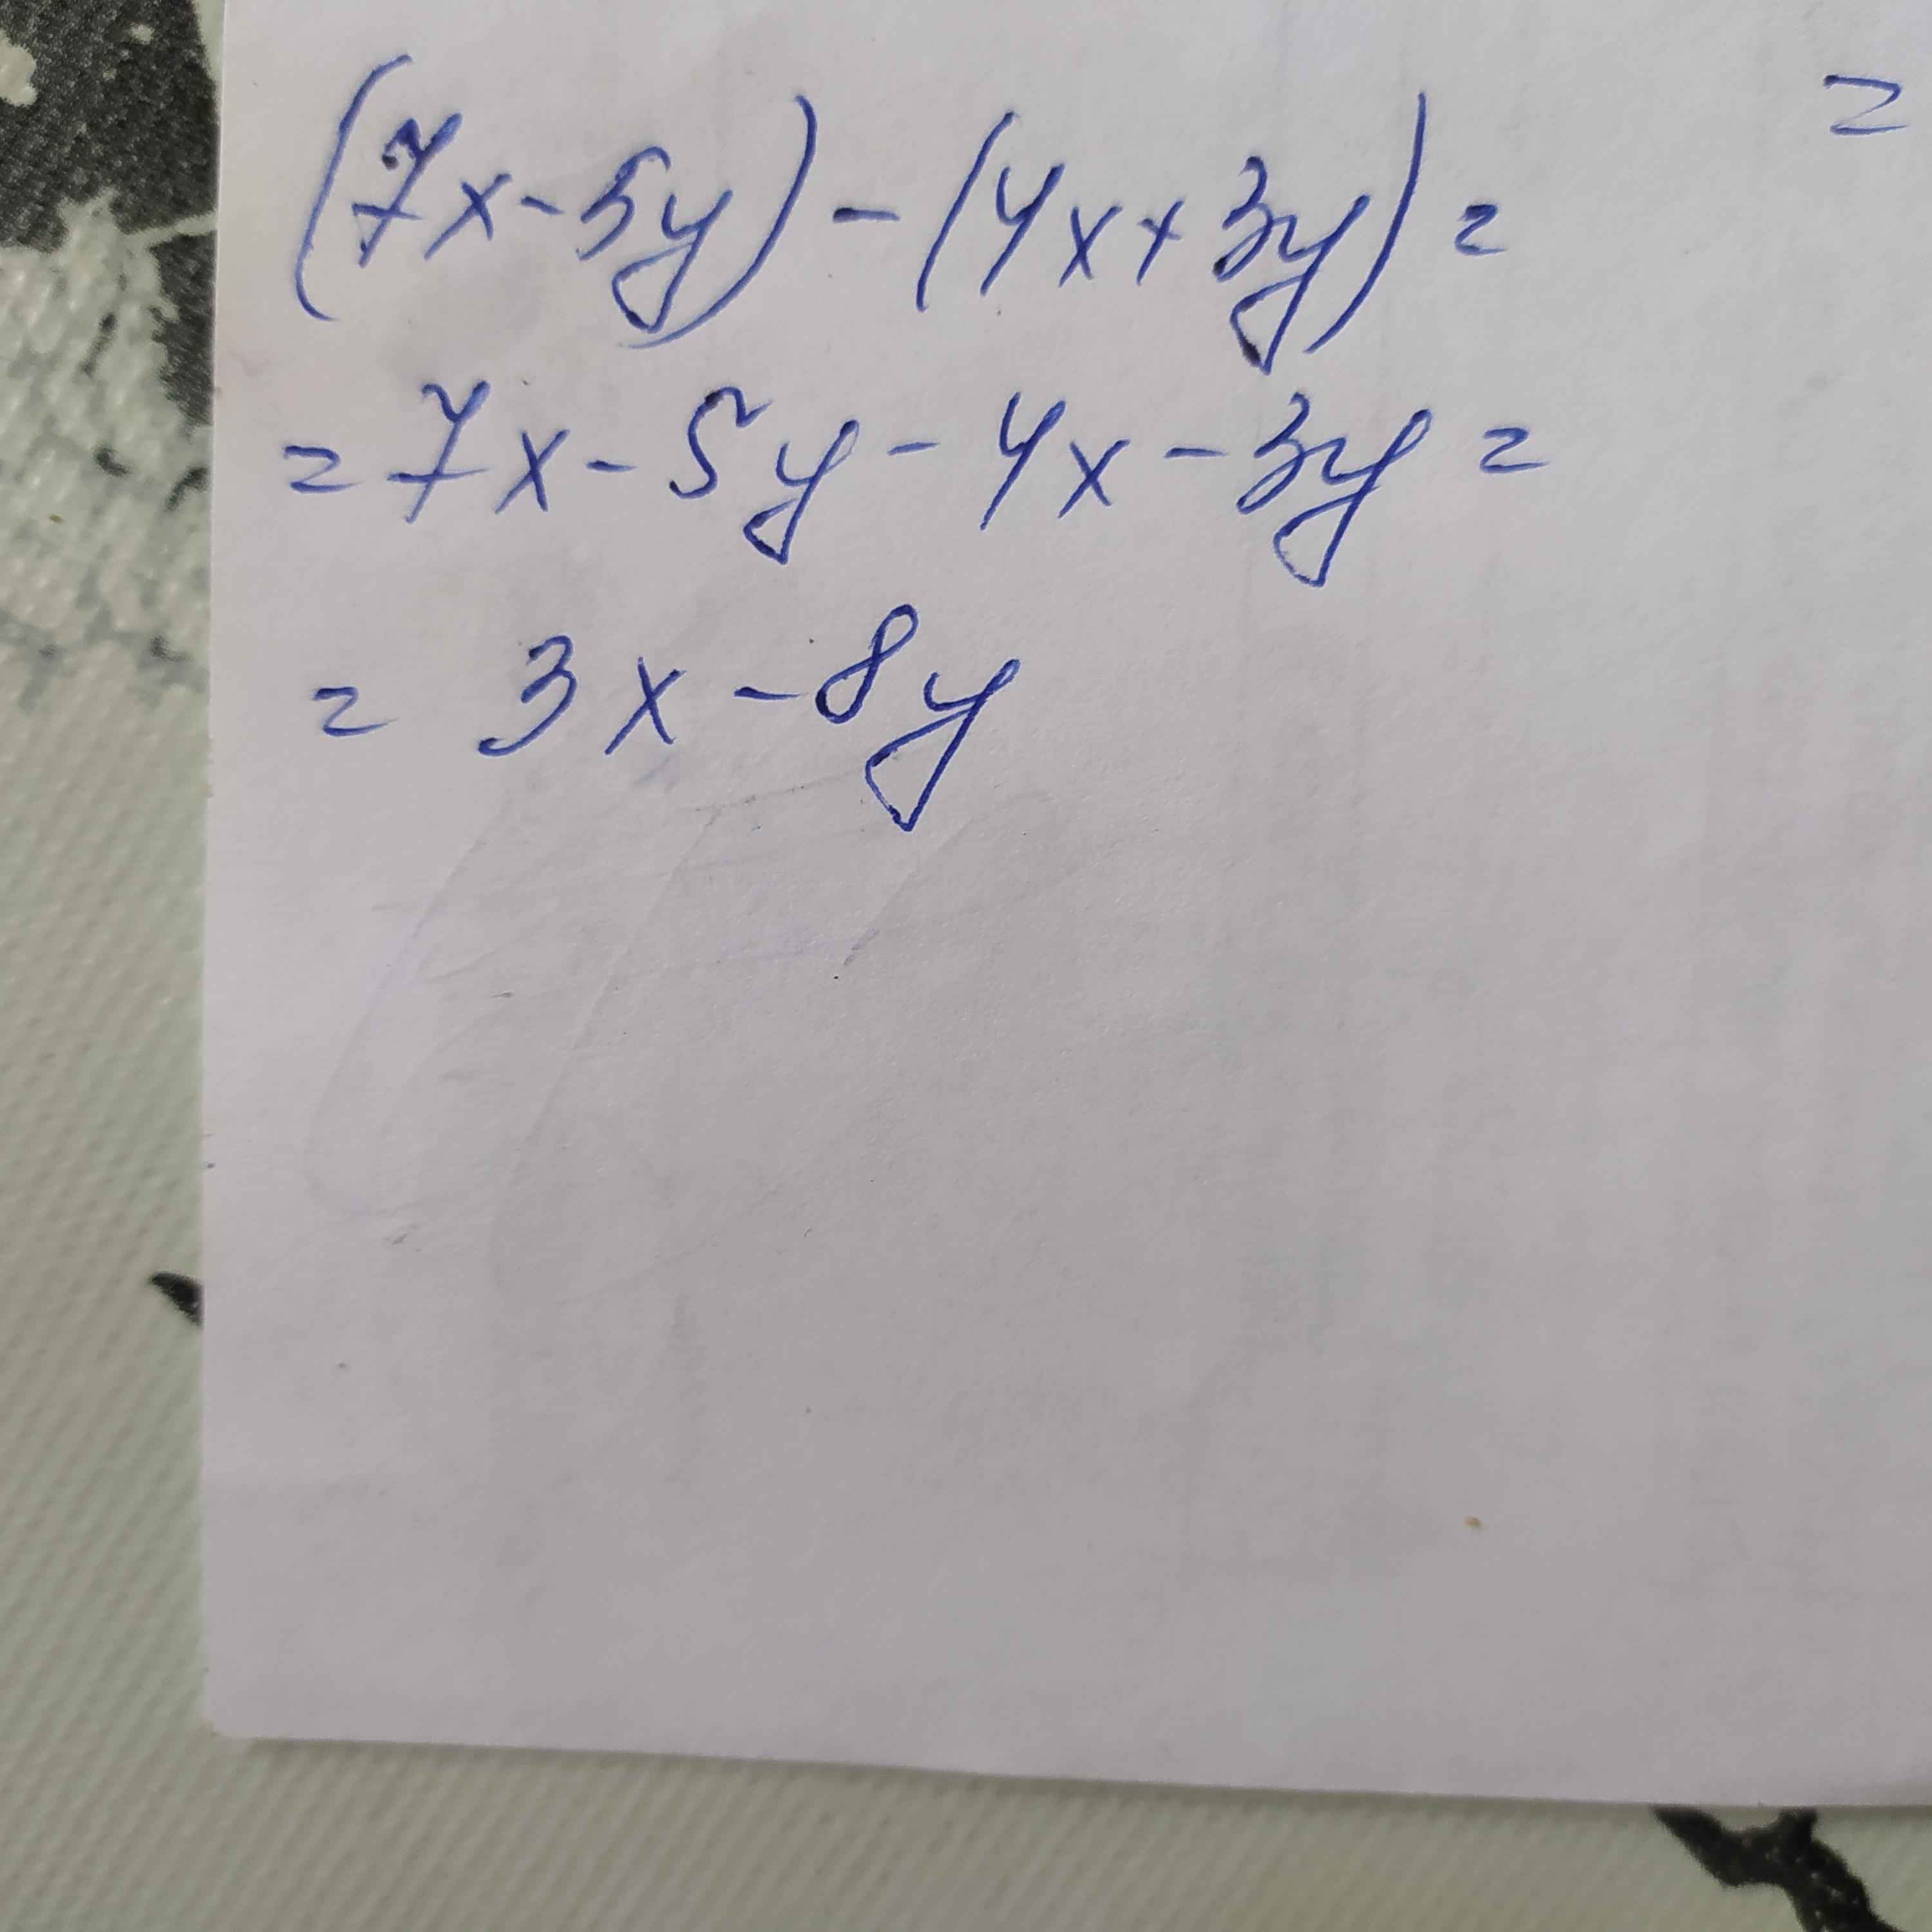 (7x-5y)-(4x+3y)=
=7x-5y-4x-3y=
= 3x-8y
=